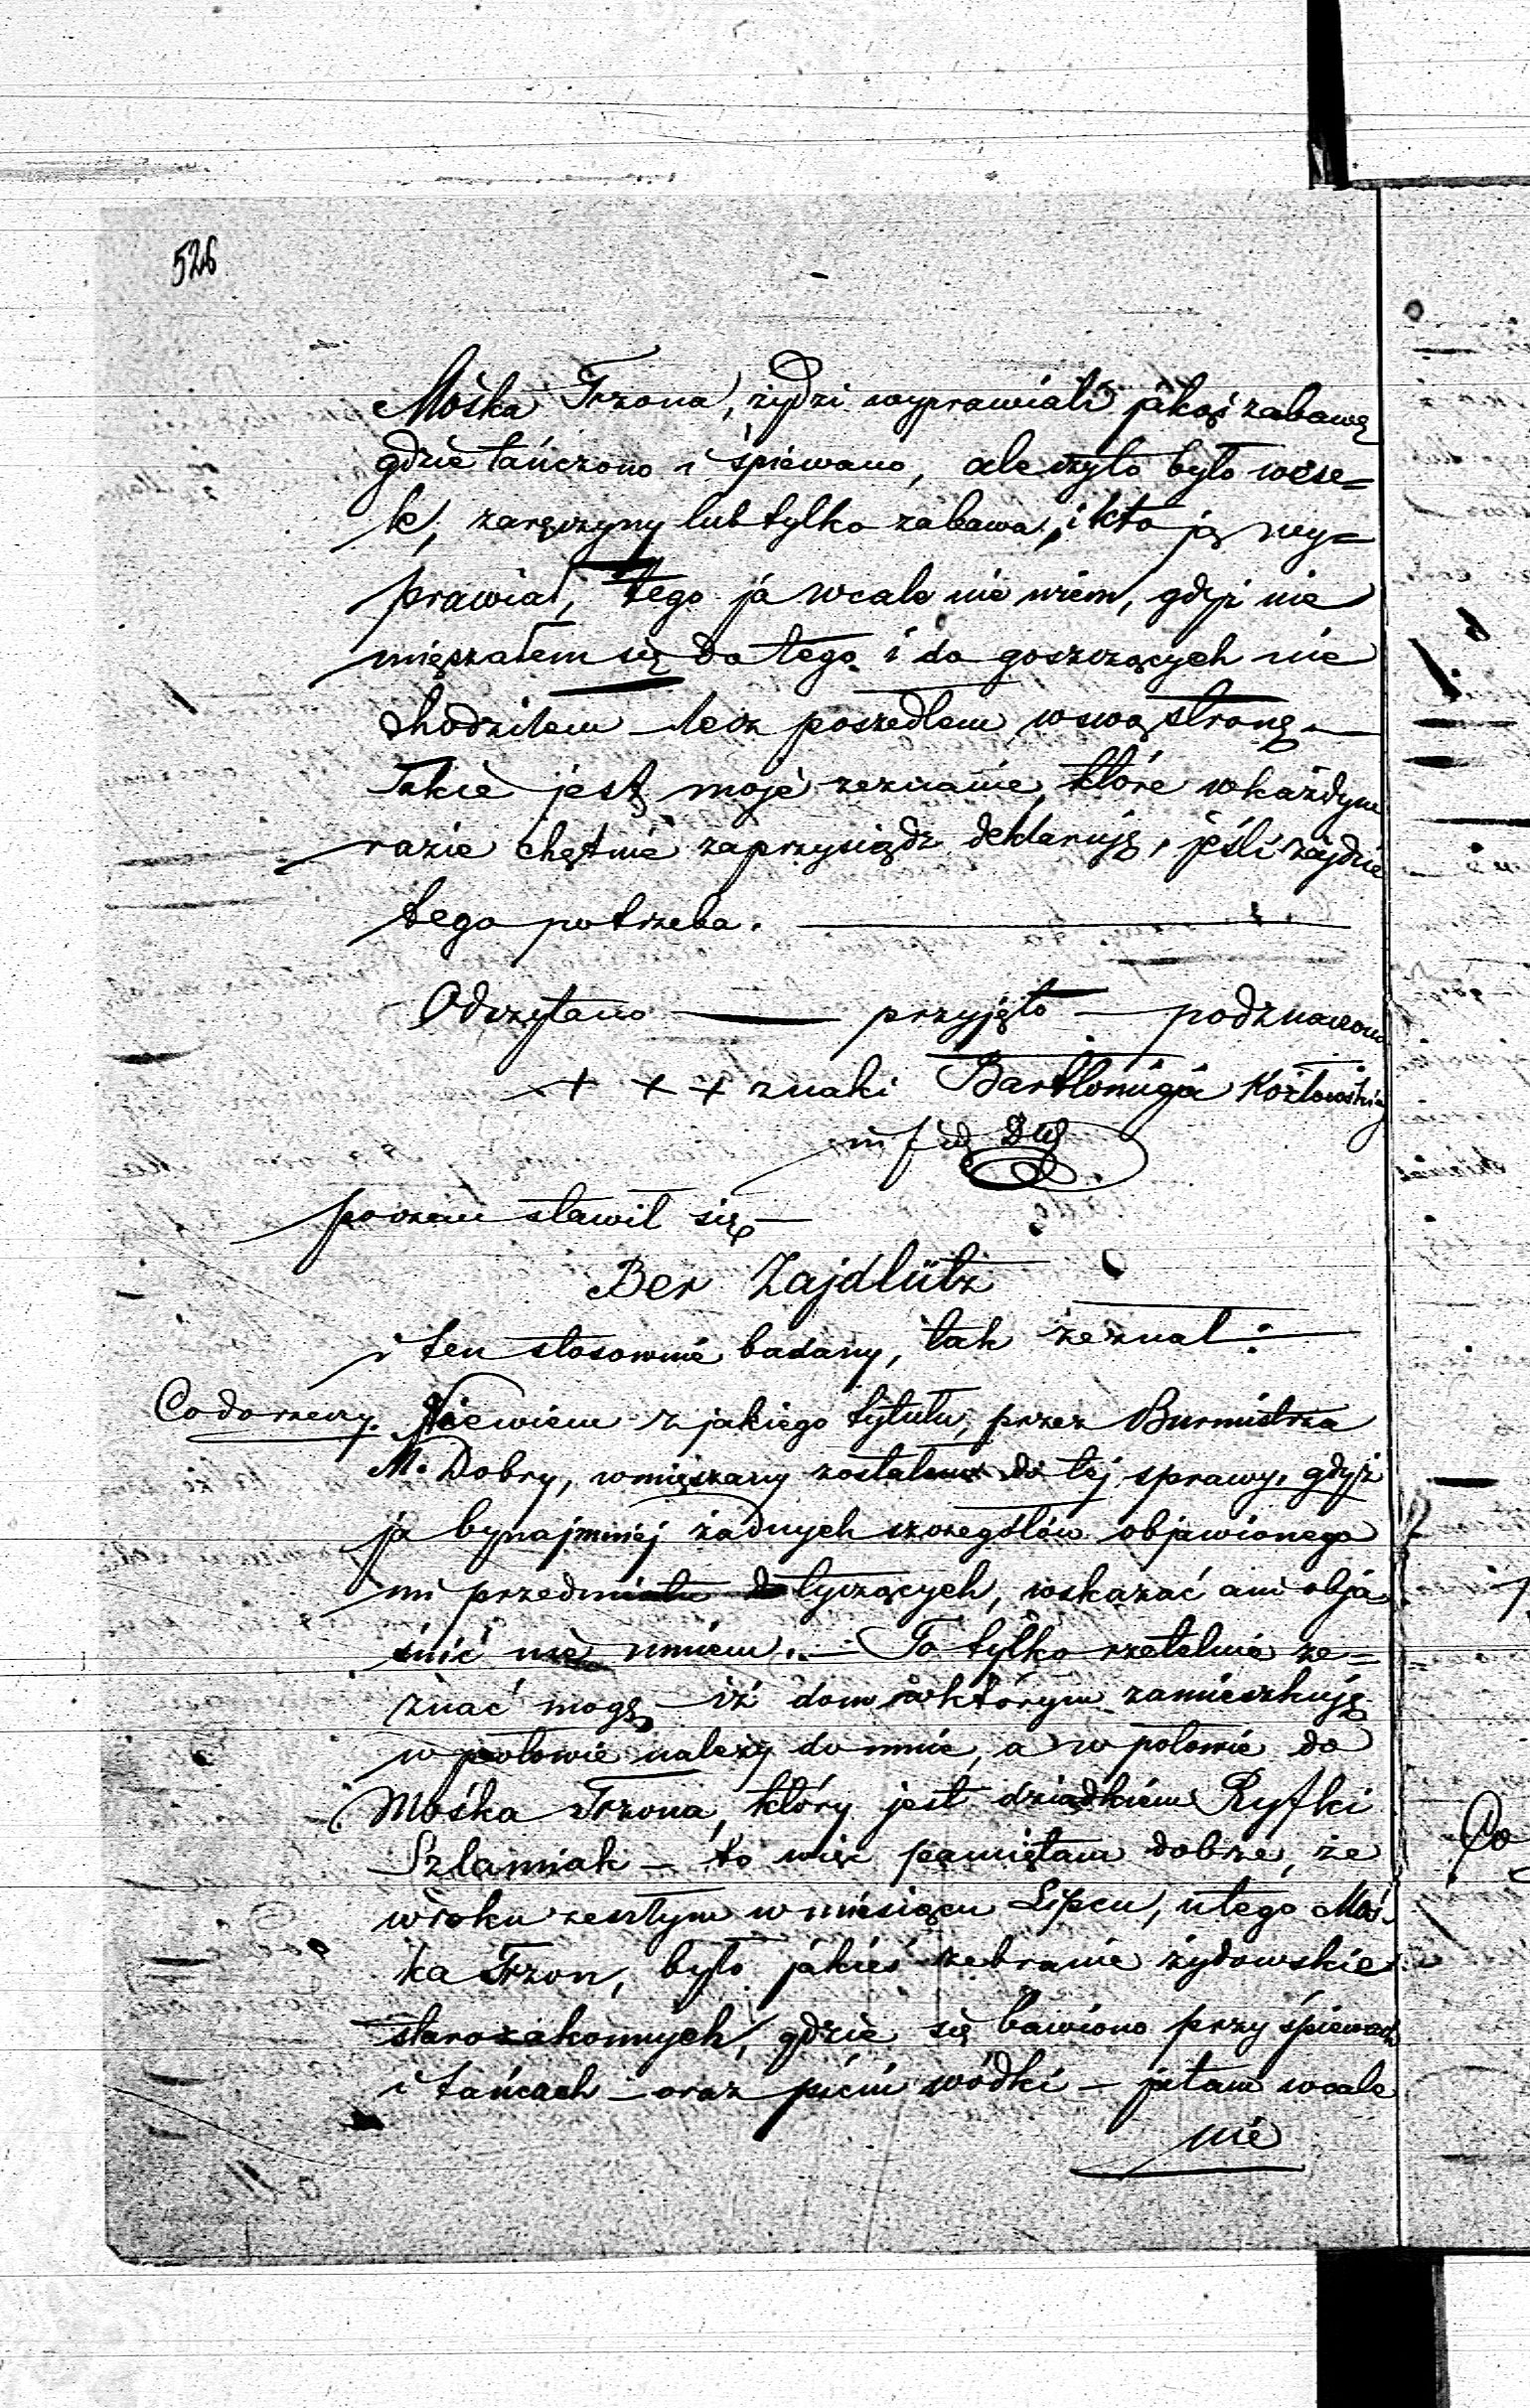 526
Mośka Trzona, żydzi wyprawiali jakąś zabawę
gdzie tańczono i śpiewano, ale czyto było wese=
le, zaręczyny lub tylko zabawa, i kto ją wy=
prawiał, tego ja wcale nie wiem, gdyż nie
mięszałem się do tego i do goszczących nie
chodziłem – lecz poszedłem w swą stronę. —
Takie jest moje zeznanie, które w każdym
razie chętnie zaprzysiądz deklaruję, jeśli zajdzie
tego potrzeba. —
Odczytano — przyjęto — podznaczono
+ + + znaki Bartłomieja Kozłowskiego
poczem stawił się —
Ber Zajdlütz
i ten stosownie badany, tak zeznał: —
Co do rzeczy. Niewiem z jakiego tytułu, przez Burmistrza
M. Dobry, wmięszany zostałem do tej sprawy, gdyż
ja bynajmniej żadnych szczegółów objawionego
mi przedmiotu dotyczących, wskazać ani obja
śnić nie umiem. — To tylko rzetelnie ze=
znać mogę – iż dom w którym zamieszkuję
w połowie należy do mnie, a w połowie do
Mośka Trzona, który jest dziadkiem Ryfki
Szlamiak – to więc pamiętam dobrze, że
w roku zeszłym w miesiącu Lipcu, u tego Moś-
ka Trzon, było jakieś zebranie żydowskie
starozakonnych, gdzie się bawiono przy śpiewach
i tańcach – oraz piciu wódki – ja tam wcale
nie
Co